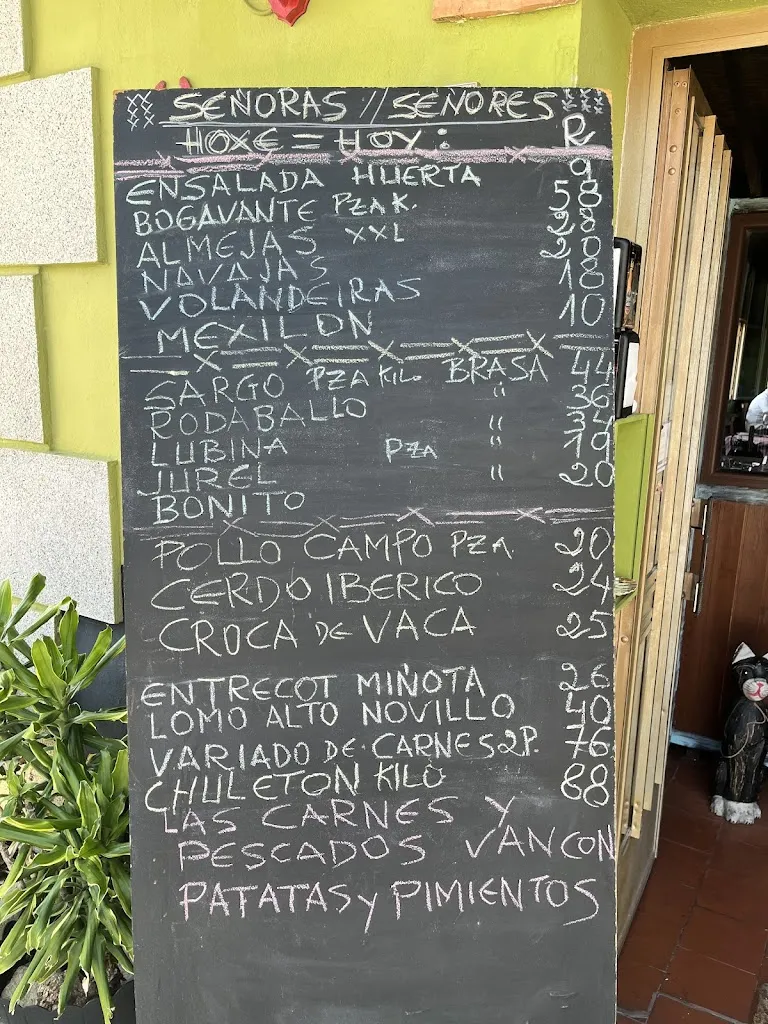 SEÑORAS // SEÑORES
HOXE = HOY :
ENSALADA HUERTA 9
BOGAVANTE PZA K. 58
ALMEJAS XXL 28
NAVAJAS 20
VOLANDEIRAS 18
MEXILON 10
SARGO PZA KILO BRASA 44
RODABALLO " 36
LUBINA " 34
JUREL PZA " 19
BONITO " 20
POLLO CAMPO PZA. 20
CERDO IBERICO 24
CROCA DE VACA 25
ENTRECOT MIÑOTA 26
LOMO ALTO NOVILLO 40
VARIADO DE CARNES 2P. 76
CHULETON KILO 68
LAS CARNES Y
PESCADOS VAN CON
PATATAS y PIMIENTOS